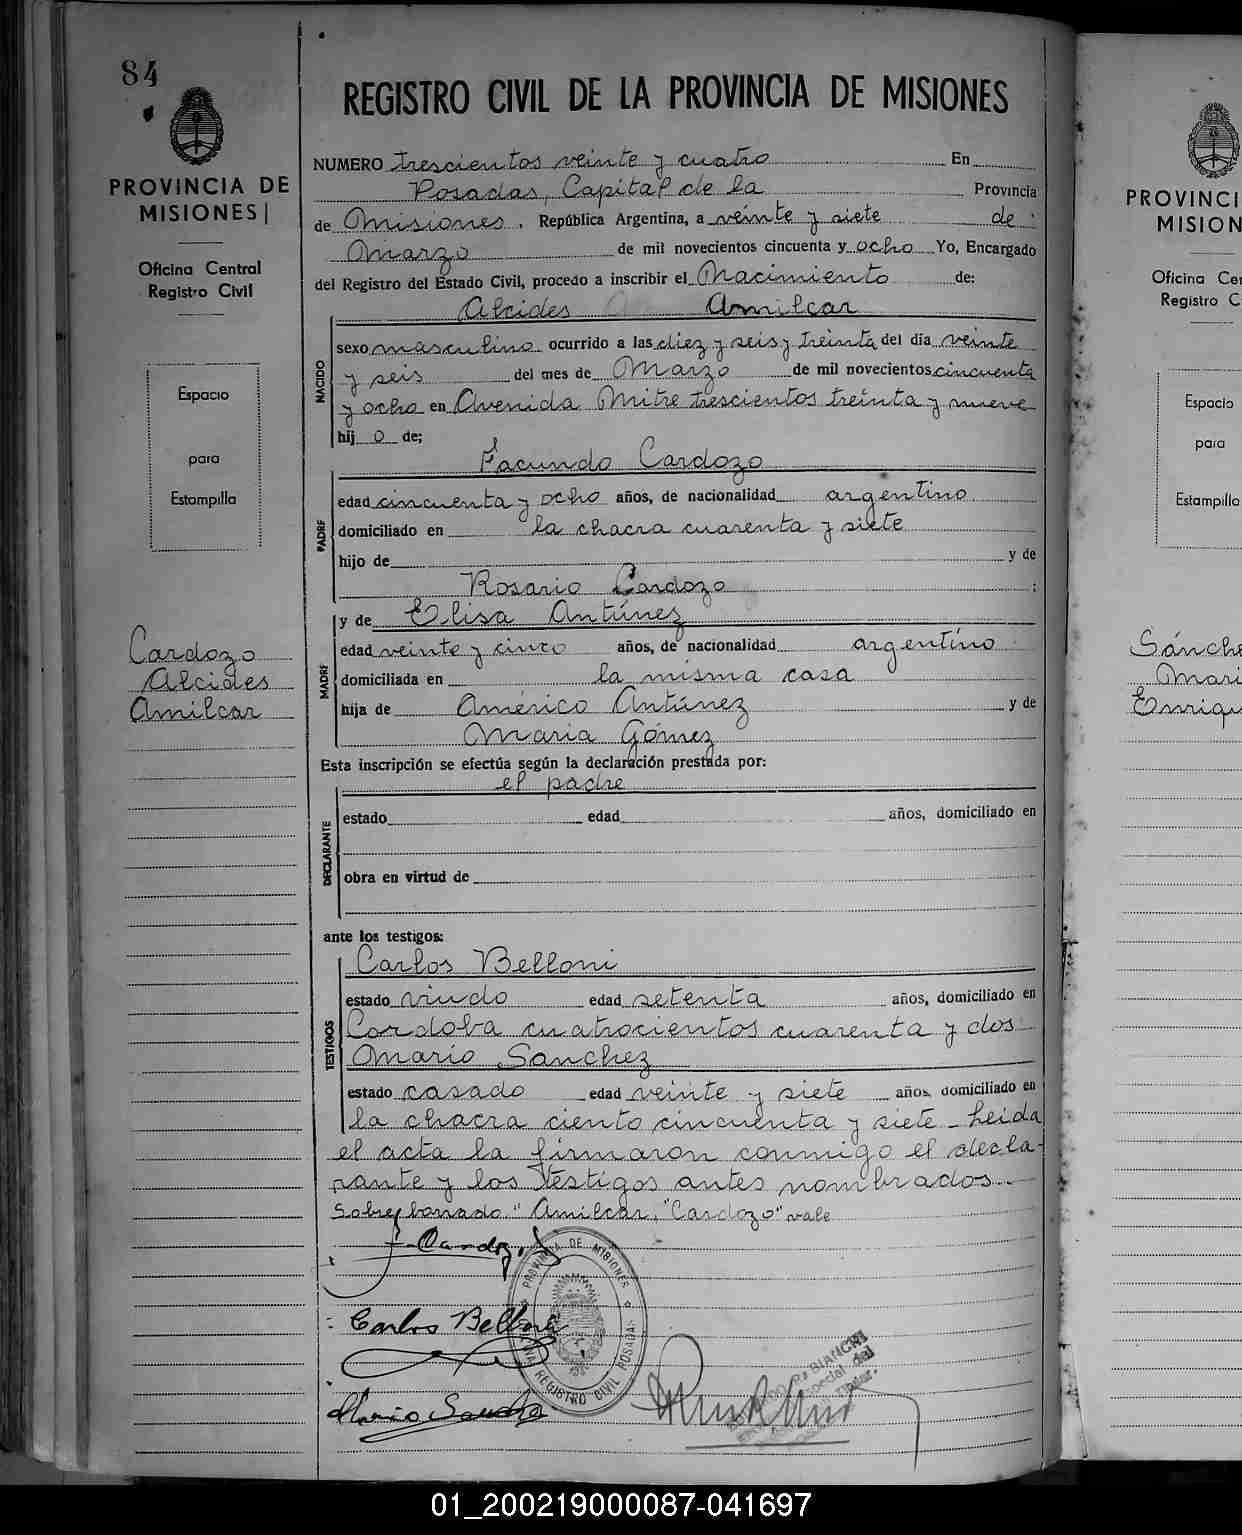 84
PROVINCIA DE
MISIONES
Oficina Central
Registro Civil
Espacio
para
Estampilla
Cardozo
Alcides
Amilcar
REGISTRO CIVIL DE LA PROVINCIA DE MISIONES
NUMERO trescientos veinte y cuatro En
Posadas, Capital de la Provincia
de Misiones, República Argentina, a veinte y siete de
Marzo de mil novecientos cincuenta y ocho Yo, Encargado
del Registro del Estado Civil, procedo a inscribir el Nacimiento de:
Alcides Amilcar
NACIDO
sexo masculino ocurrido a las diez y seis y treinta del día veinte
y seis del mes de Marzo de mil novecientos cincuenta
y ocho en Avenida Mitre trescientos treinta y nueve
hij o de;
Facundo Cardozo
PADRE
edad cincuenta y ocho años, de nacionalidad argentino
domiciliado en la chacra cuarenta y siete
hijo de y de
Rosario Cardozo ;
y de Elisa Antúnez
MADRE
edad veinte y cinco años, de nacionalidad argentino
domiciliada en la misma casa
hija de Américo Antúnez y de
Maria Gómez
Esta inscripción se efectúa según la declaración prestada por:
el padre
DECLARANTE
estado edad años, domiciliado en
obra en virtud de
ante los testigos:
Carlos Belloni
TESTIGOS
estado viudo edad setenta años, domiciliado en
Cordoba cuatrocientos cuarenta y dos
Mario Sanchez
estado casado edad veinte y siete años, domiciliado en
la chacra ciento cincuenta y siete - Leida
el acta la firmaron conmigo el decla-
rante y los testigos antes nombrados.-
Sobre borrado "Amilcar, "Cardozo" vale
F. Cardozo
Carlos Belloni
Mario Sanchez
PROVINCIA DE MISIONES
REGISTRO CIVIL POSADAS
BIANCHI
PROVINCI
MISION
Oficina Cen
Registro C
Espacio
para
Estampilla
Sánche
Mari
Enriqu
01_200219000087-041697